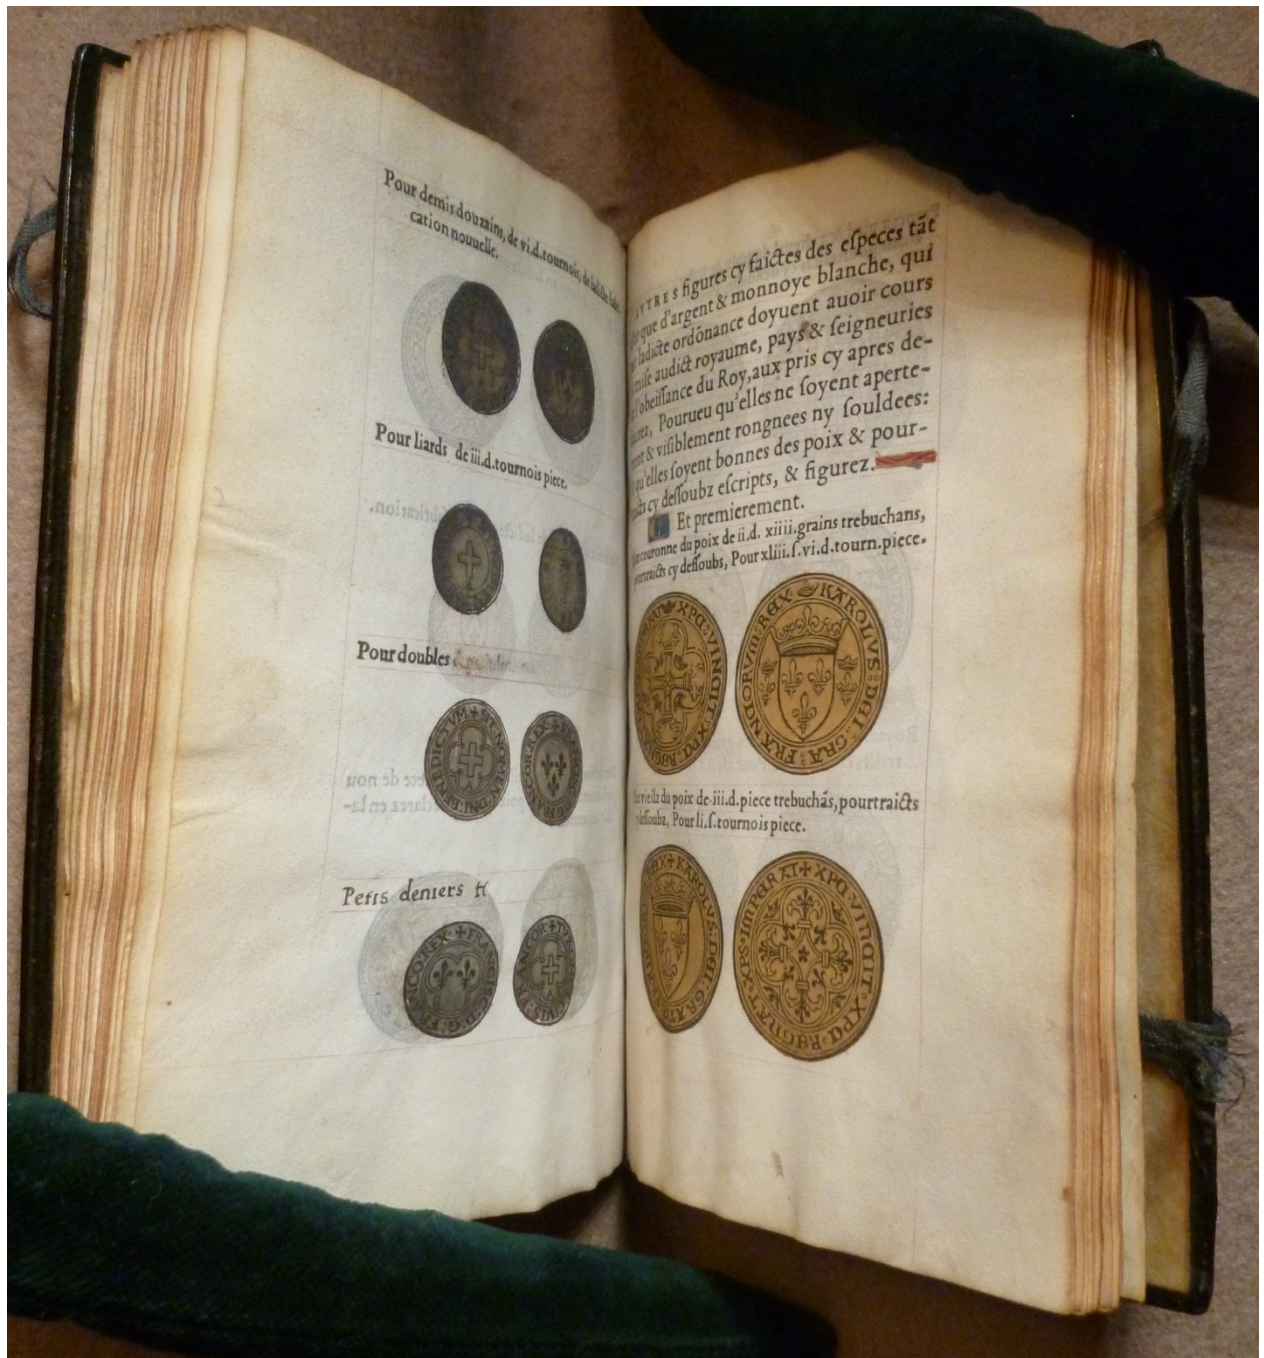 Pour demis douzains, de vi.d.tournois, de
cation nouuelle.
Pour liards de iii.d.tournois piece.
Pour doubles
BENEDICTVM + SIT NOMEN DNI
Petis deniers
figures cy faictes des especes tāt
que d'argent & monnoye blanche, qui
ladicte ordōnance doyuent auoir cours
audict royaume, pays & seigneuries
l'obeissance du Roy, aux pris cy apres de-
Pourueu qu'elles ne soyent aperte-
& visiblement rongnees ny souldees:
qu'elles soyent bonnes des poix & pour-
cy dessoubz escripts, & figurez.
Et premierement.
couronne du poix de ii.d. xiiii.grains trebuchans,
cy dessoubs, Pour xliii.s.vi.d.tourn.piece.
XPC: VINCIT: XPC: REGN
KAROLVS: DEI: GRA: FRANCORVM: REX
vieilz du poix de.iii.d.piece trebuchās, pourtraicts
dessoubz, Pour li.s.tournois piece.
REX + KAROLVS: DEI: GRA
+ XPC: VINCIT: XPC: REGNAT: XPS: IMPERAT